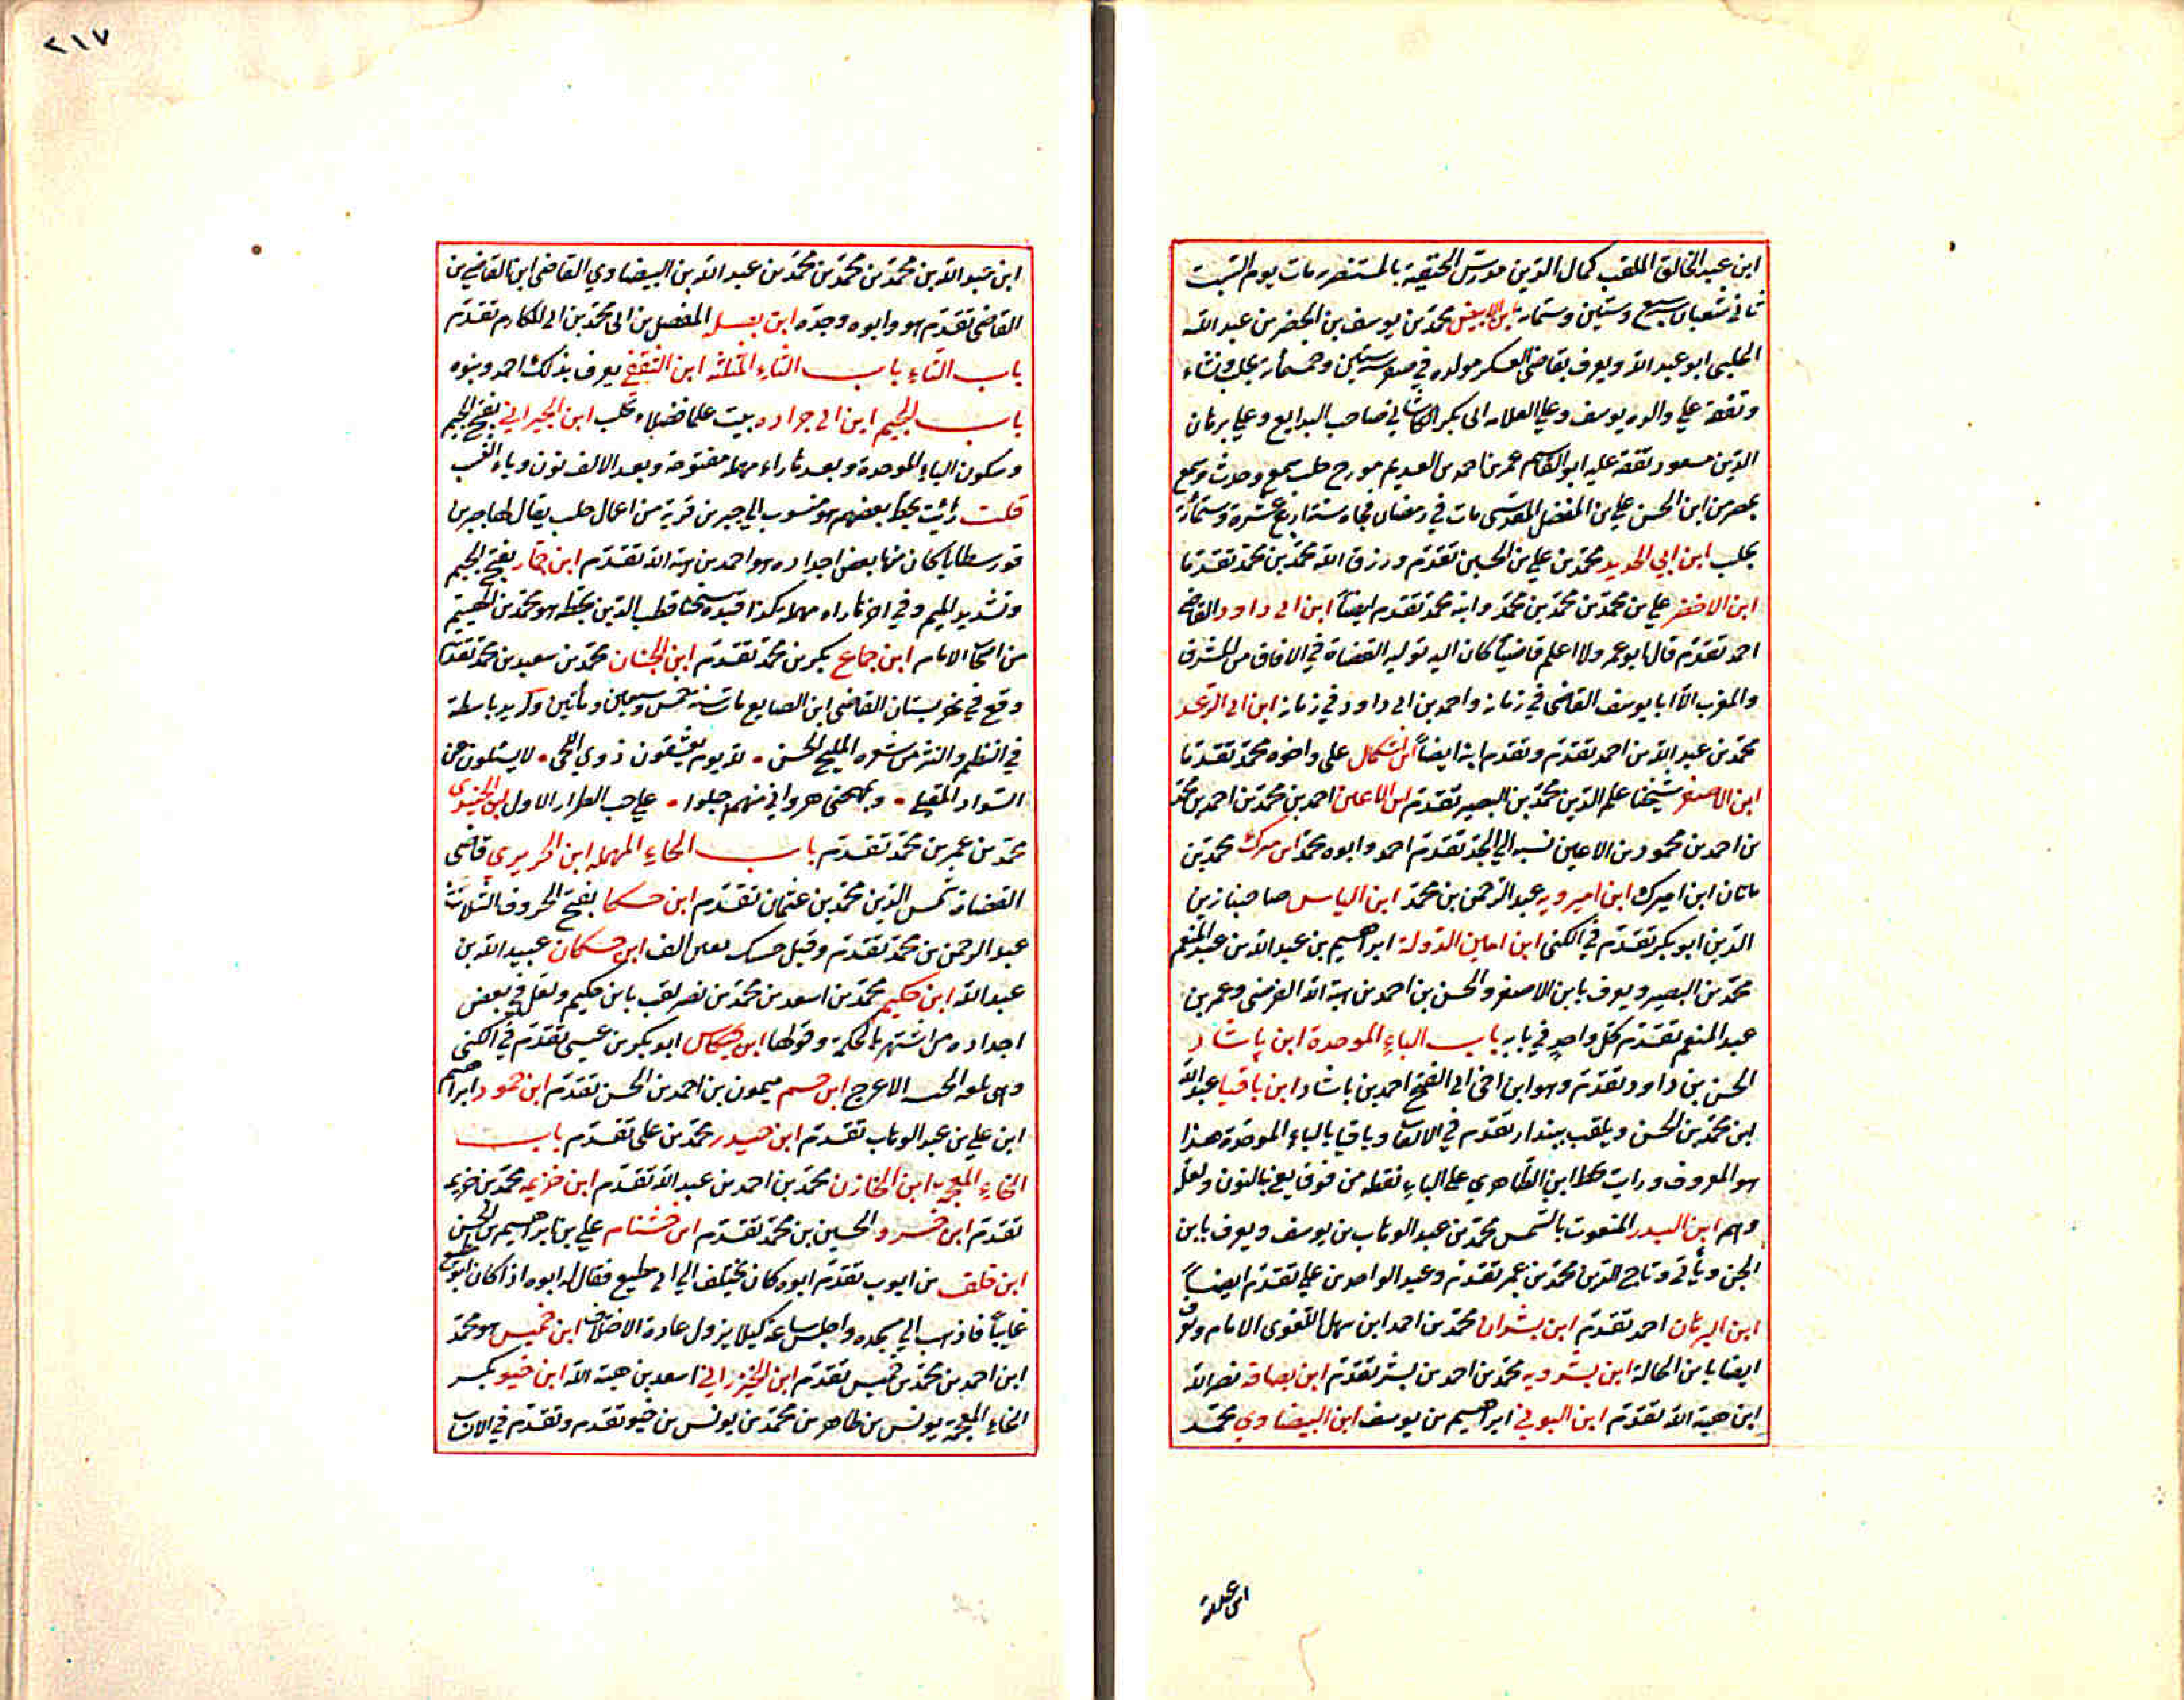 ابن عبد الخالق الملقب كمال الدين مدرس الحنفية بالمستنصرية مات يوم السبت
ثاني شعبان سبع وستين وستمائة ابن الابيض محمد بن يوسف بن الخضر بن عبد الله
الحلبي ابو عبد الله ويعرف بقاضي العسكر مولده في صفر ستين وخمسمائة بحلب ونشاء
وتفقه على والده يوسف وعلى العلامة ابى بكر الكاشاني صاحب البدايع وعلى برهان
الدين مسعود تفقه عليه ابو القاسم عمر بن احمد بن العديم مورخ حلب سمع وحدث وسمع
بمصر من ابن الحسن علي بن المفضل المقدسى مات في رمضان فجاه سنة اربع عشرة وستمائة
بحلب ابن ابي الحديد محمد بن علي بن الحسين تقدم ورزق الله محمد بن محمد تقدما
ابن الاخضر علي بن محمد بن محمد بن محمد وابنه محمد تقدم ايضاً ابن ابى داود القاضى
احمد تقدم قال ابو عمر ولا اعلم قاضياً كان اليه توليه القضاة في الافاق من المشرق
والمغرب الا ابا يوسف القاضى في زمانه واحمد بن ابى داود في زمانه ابن ابى الرعد
محمد بن عبد الله بن احمد تقدم وتقدم ابنه ايضاً ابن اشكال على واخوه محمد تقدما
ابن الاصفر شيخنا علم الدين محمد بن البصير تقدم ابن الاعين احمد بن محمد بن احمد بن محمد
بن احمد بن محمود بن الاعين نسبه الي الجد تقدم احمد وابوه محمد ابن ميرك محمد بن
ماثان ابن اميرك ابن اميرويه عبد الرحمن بن محمد ابن الياس صاحبنا زين
الدين ابو بكر تقدم في الكنى ابن امين الدولة ابراهيم بن عبد الله بن عبد المنعم
محمد بن البصير ويعرف بابن الاصفر والحسن بن احمد بن هبة الله الفرضى وعمر بن
عبد المنعم تقدم كل واحد في بابه باب الباء الموحدة ابن باشاد
الحسن بن داود تقدم وهو ابن اخى ابى الفتح احمد بن باشاد ابن باقيا عبد الله
بن محمد بن الحسن ويلقب ببندار تقدم في الالقاب وباقيا بالباء الموحدة هذا
هو المعروف ورايت بخط ابن الظاهري على الباء نقطه من فوق يعنى بالنون ولعله
وهم ابن البدر المنعوت بالشمس محمد بن عبد الوهاب بن يوسف ويعرف بابن
الجن ويأتى وتاج الدين محمد بن عمر تقدم وعبد الواحد بن علي تقدم ايضاً
ابن البرهان احمد تقدم ابن بشران محمد بن احمد ابن سهل اللغوى الامام وعرف
ايضا بابن الخالة ابن بشرويه محمد بن احمد بن بشر تقدم ابن بصاقه نصر الله
ابن هبة الله تقدم ابن البوني ابراهيم بن يوسف ابن البيضاوي محمد
٢١٧
ابن عبد الله بن محمد بن محمد بن محمد بن عبد الله بن البيضاوي القاضى ابن القاضى بن
القاضى تقدم هو وابوه وجده ابن بصيله المفضل بن ابى محمد بن ابى المكارم تقدم
باب التاء باب الثاء المثلثة ابن الثقفي يعرف بذلك احمد وبنوه
باب الجيم ابن ابى جراده بيت علما فضلاء حلب ابن الجبراني بفتح الجيم
وسكون الباء الموحدة وبعدها راء مهملة مفتوحة وبعد الالف نون وياء النسب
قلت رأيت بخط بعضهم هو منسوب الي جبرين قرية من اعمال حلب يقال لها جبرين
قورسطايا كان منها بعض اجداده هو احمد بن هبة الله تقدم ابن جمار بفتح الجيم
وتشديد الميم وفي اخرها راء مهملة كذا قيده شيخنا قطب الدين بخطه هو محمد بن الهيثم
من اصحاب الامام ابن جماع بكر بن محمد تقدم ابن الجنان محمد بن سعيد بن محمد تقدم
وقع في نهر بستان القاضى ابن الصايع مات سنة خمس وسبعين ومأتين وكريد باسطة
في النظم والنثر من شعره المليح الحسن ۰ لله يوم يعشقون ذوي اللحى ۰ لا يسئلون عن
السواد المقبل ۰ وبمهجتى هم وانى منهم جلوا ۰ على حب الطراز الاول ابن الجنيدى
محمد بن عمر بن محمد تقدم باب الحاء المهملة ابن الحريري قاضى
القضاة شمس الدين محمد بن عثمان تقدم ابن حسكا بفتح الحروف الثلاث
عبد الرحمن بن محمد تقدم وقيل حسك بغير الف ابن حسكان عبيد الله بن
عبد الله ابن حكيم محمد بن اسعد بن محمد بن نصر لقب بابن حكيم ولعل في بعض
اجداده من اشتهر بالحكمة وقولها ابن حكاس ابو بكر بن عيسى تقدم في الكنى
الاعرج ابن حسم ميمون بن احمد بن الحسن تقدم ابن حمود ابراهيم
ابن علي بن عبد الوهاب تقدم ابن حيدر محمد بن على تقدم باب
الخاء المعجمة ابن الخازن محمد بن احمد بن عبد الله تقدم ابن خزيمه محمد بن خزيمه
تقدم ابن خسرو الحسين بن محمد تقدم ابن خشنام علي بن ابراهيم بن الحسن
ابن خلف بن ايوب تقدم ابوه كان يختلف الي ابى مطيع فقال له ابوه اذا كان ابو مطيع
غايباً فاذهب الي مسجده واجلس ساعة كيلا يزول عادة الاختلاف ابن خميس هو محمد
ابن احمد بن محمد بن خميس تقدم ابن الخيزراني اسعد بن هبة الله ابن خيو بكسر
الخاء المعجمة يونس بن طاهر بن محمد بن يونس بن خيو تقدم وتقدم في الانساب